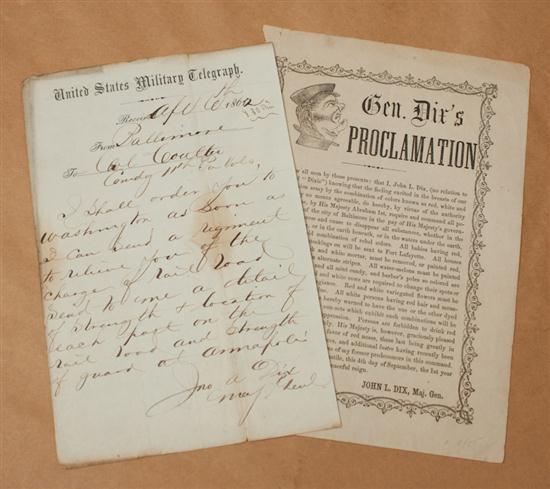 United States Military Telegraph.
Received Apl 6th 1862
From Baltimore
To Col Coulter
Comdg 11th Pa Vols,
I shall order you to
Washington as soon as
I can send a regiment
to relieve you of the
charge of rail road
Send to me a detail
of strength & location of
each post on the
rail road and strength
of guard at Annapolis
Jno A Dix
Maj Genl
Gen. Dix's
PROCLAMATION
all men by these presents: that I, John L. Dix, (no relation to
"Dixie") knowing that the feeling excited in the breasts of our
army by the combination of colors known as red, white and
no means agreeable, do, hereby, by virtue of the authority
me, by His Majesty Abraham 1st, require and command all
of the city of Baltimore in the pay of His Majesty's
and cause to disappear all substances, whether in the
or in the earth beneath, or in the waters under the earth,
combination of rebel colors. All babies having red,
stockings on will be sent to Fort Lafayette. All houses
and white mortar, must be removed, or painted red,
alternate stripes. All water-melons must be painted
and all mint candy, and barber's poles so colored are
and white cows are required to change their spots or
Red and white variegated flowers must be
All white persons having red hair and
hereby warned to have the one or the other dyed
which exhibit such combinations will be
Persons are forbidden to drink red
His Majesty is, however, graciously pleased
favor of red noses, these last being greatly in
and additional lustre having recently been
of my former predecessors in this command.
this, the 4th day of September, the 1st year
reign.
JOHN L. DIX, Maj. Gen.